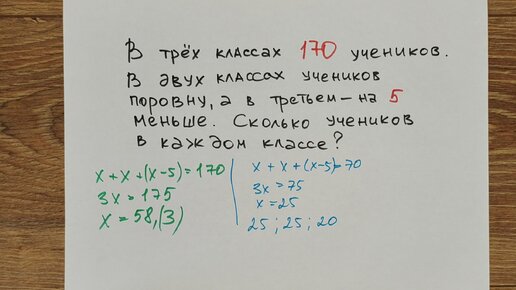 В трёх классах 170 учеников.
В двух классах учеников
поровну, а в третьем – на 5
меньше. Сколько учеников
в каждом классе?
x + x + (x-5) = 170
3x = 175
x = 58,(3)
x + x + (x-5) = 70
3x = 75
x = 25
25 ; 25 ; 20